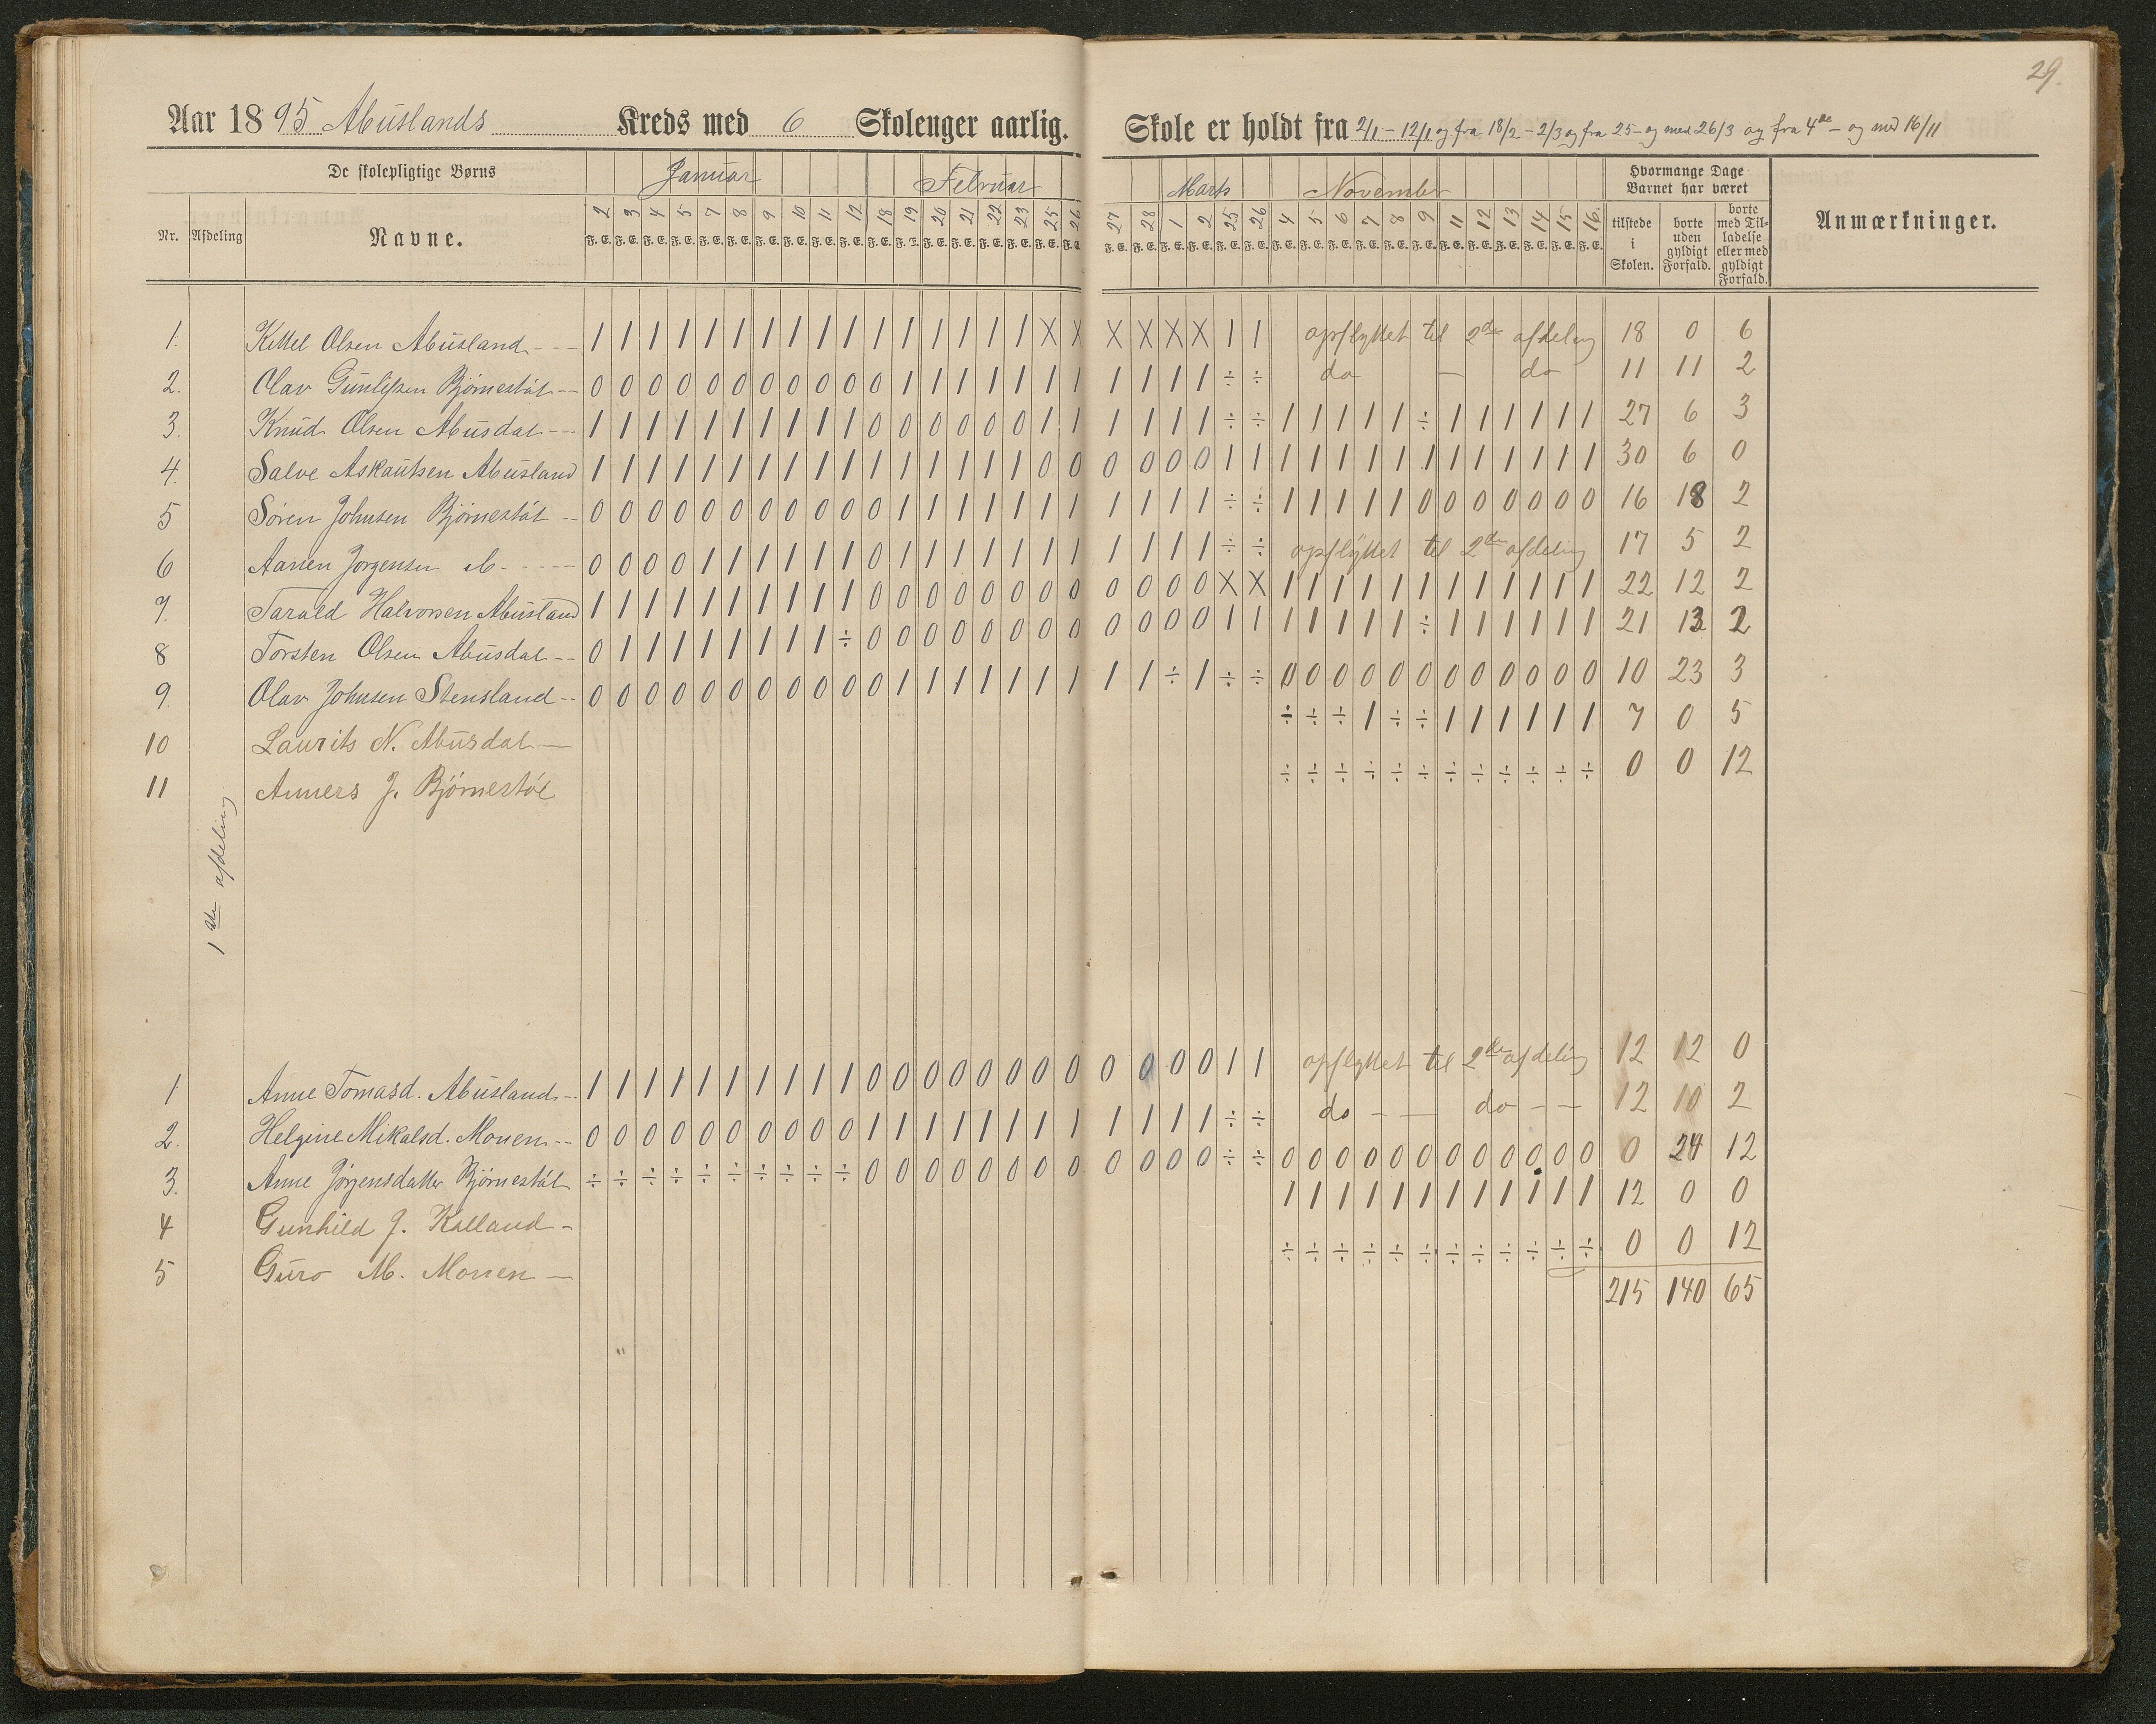 29.
Aar 1895 Abuslands Kreds med 6 Skoleuger aarlig. Skole er holdt fra 2/1 – 12/1 og fra 18/2 – 2/3 og fra 25 – og med 26/3 og fra 4de – og med 16/11
De skolepligtige Børns Januar Februar Marts November Hvormange Dage Barnet har været
Nr. Afdeling Navne. 2 3 4 5 7 8 9 10 11 12 18 19 20 21 22 23 25 26 27 28 1 2 25 26 4 5 6 7 8 9 11 12 13 14 15 16 tilstede i Skolen. borte uden gyldigt Forfald. borte med Tilladelse eller med gyldigt Forfald. Anmærkninger.
F. E. F. E. F. E. F. E. F. E. F. E. F. E. F. E. F. E. F. E. F. E. F. E. F. E. F. E. F. E. F. E. F. E. F. E. F. E. F. E. F. E. F. E. F. E. F. E. F. E. F. E. F. E. F. E. F. E. F. E. F. E. F. E. F. E. F. E. F. E. F. E.
1ste afdeling
1. Kittel Olsen Abusland - - - 1 1 1 1 1 1 1 1 1 1 1 1 1 1 1 1 X X X X X X 1 1 opflyttet til 2de afdeling 18 0 6
2. Olav Gunleiksen Bjørnestøl - - 0 0 0 0 0 0 0 0 0 0 0 1 1 1 1 1 1 1 1 1 1 1 ÷ ÷ do — do 11 11 2
3. Knud Olsen Abusdal - - - 1 1 1 1 1 1 1 1 1 1 0 0 0 0 0 0 1 1 1 1 1 1 ÷ ÷ 1 1 1 1 1 ÷ 1 1 1 1 1 1 27 6 3
4. Salve Askautsen Abusland 1 1 1 1 1 1 1 1 1 1 1 1 1 1 1 1 0 0 0 0 0 0 1 1 1 1 1 1 1 1 1 1 1 1 1 1 30 6 0
5 Søren Johnsen Bjørnestøl - - 0 0 0 0 0 0 0 0 0 0 0 1 1 1 1 1 1 1 1 1 1 1 ÷ ÷ 1 1 1 1 1 0 0 0 0 0 0 0 16 18 2
6 Aanen Jørgensen do. - - - - 0 0 0 0 1 1 1 1 1 1 0 1 1 1 1 1 1 1 1 1 1 1 ÷ ÷ opflyttet til 2de afdeling 17 5 2
7. Tarald Halvorsen Abusland 1 1 1 1 1 1 1 1 1 1 0 0 0 0 0 0 0 0 0 0 0 0 X X 1 1 1 1 1 1 1 1 1 1 1 1 22 12 2
8 Torsten Olsen Abusdal - - 0 1 1 1 1 1 1 1 1 ÷ 0 0 0 0 0 0 0 0 0 0 0 0 1 1 1 1 1 1 1 ÷ 1 1 1 1 1 1 21 13 2
9. Olav Johnsen Stensland - - 0 0 0 0 0 0 0 0 0 0 0 1 1 1 1 1 1 1 1 1 ÷ 1 ÷ ÷ 0 0 0 0 0 0 0 0 0 0 0 0 10 23 3
10 Laurits N. Abusdal — ÷ ÷ ÷ 1 ÷ ÷ 1 1 1 1 1 1 7 0 5
11 Anners J. Bjørnestøl ÷ ÷ ÷ ÷ ÷ ÷ ÷ ÷ ÷ ÷ ÷ ÷ 0 0 12
1 Anne Tomasd. Abusland - - 1 1 1 1 1 1 1 1 1 1 0 0 0 0 0 0 0 0 0 0 0 0 1 1 opflyttet til 2de afdeling 12 12 0
2. Helgine Mikalsd. Monen - - 0 0 0 0 0 0 0 0 0 0 1 1 1 1 1 1 1 1 1 1 1 1 ÷ ÷ do - — do - — 12 10 2
3. Anne Jørgensdatter Bjørnestøl ÷ ÷ ÷ ÷ ÷ ÷ ÷ ÷ ÷ ÷ 0 0 0 0 0 0 0 0 0 0 0 0 ÷ ÷ 0 0 0 0 0 0 0 0 0 0 0 0 0 24 12
4 Gunhild J. Kalland - 1 1 1 1 1 1 1 1 1 1 1 1 12 0 0
5 Guro M. Monen — ÷ ÷ ÷ ÷ ÷ ÷ ÷ ÷ ÷ ÷ ÷ ÷ 0 0 12
215 140 65